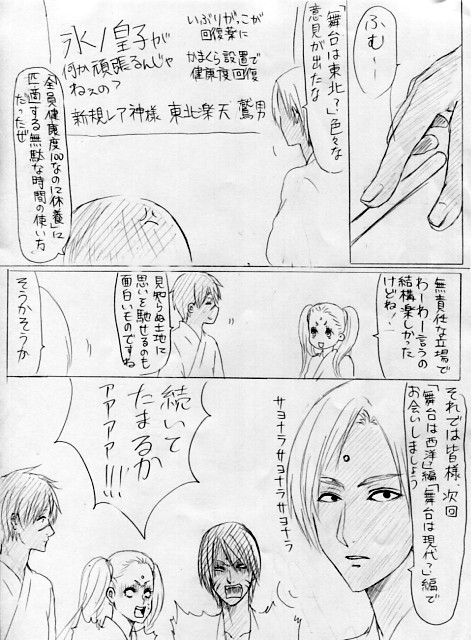 ふむ～
「舞台は東北?」色々な
意見が出たな
いぶりがっこが
回復薬に
かまくら設置で
健康度回復
氷ノ皇子が
何か頑張るんじゃ
ねぇの?
新規レア神様 東北楽天 鷲男
「全員健康度100なのに休養」に
匹敵する無駄な時間の使い方
だったぜ
無責任な立場で
わーわー言うの
結構楽しかった
けどね～
見知らぬ土地に
思いを馳せるのも
面白いものですね
そうかそうか
それでは皆様、次回
「舞台は西洋」編「舞台は現代?」編で
お会いしましょう
サヨナラサヨナラサヨナラ
続いて
たまるか
アアアア!!!!